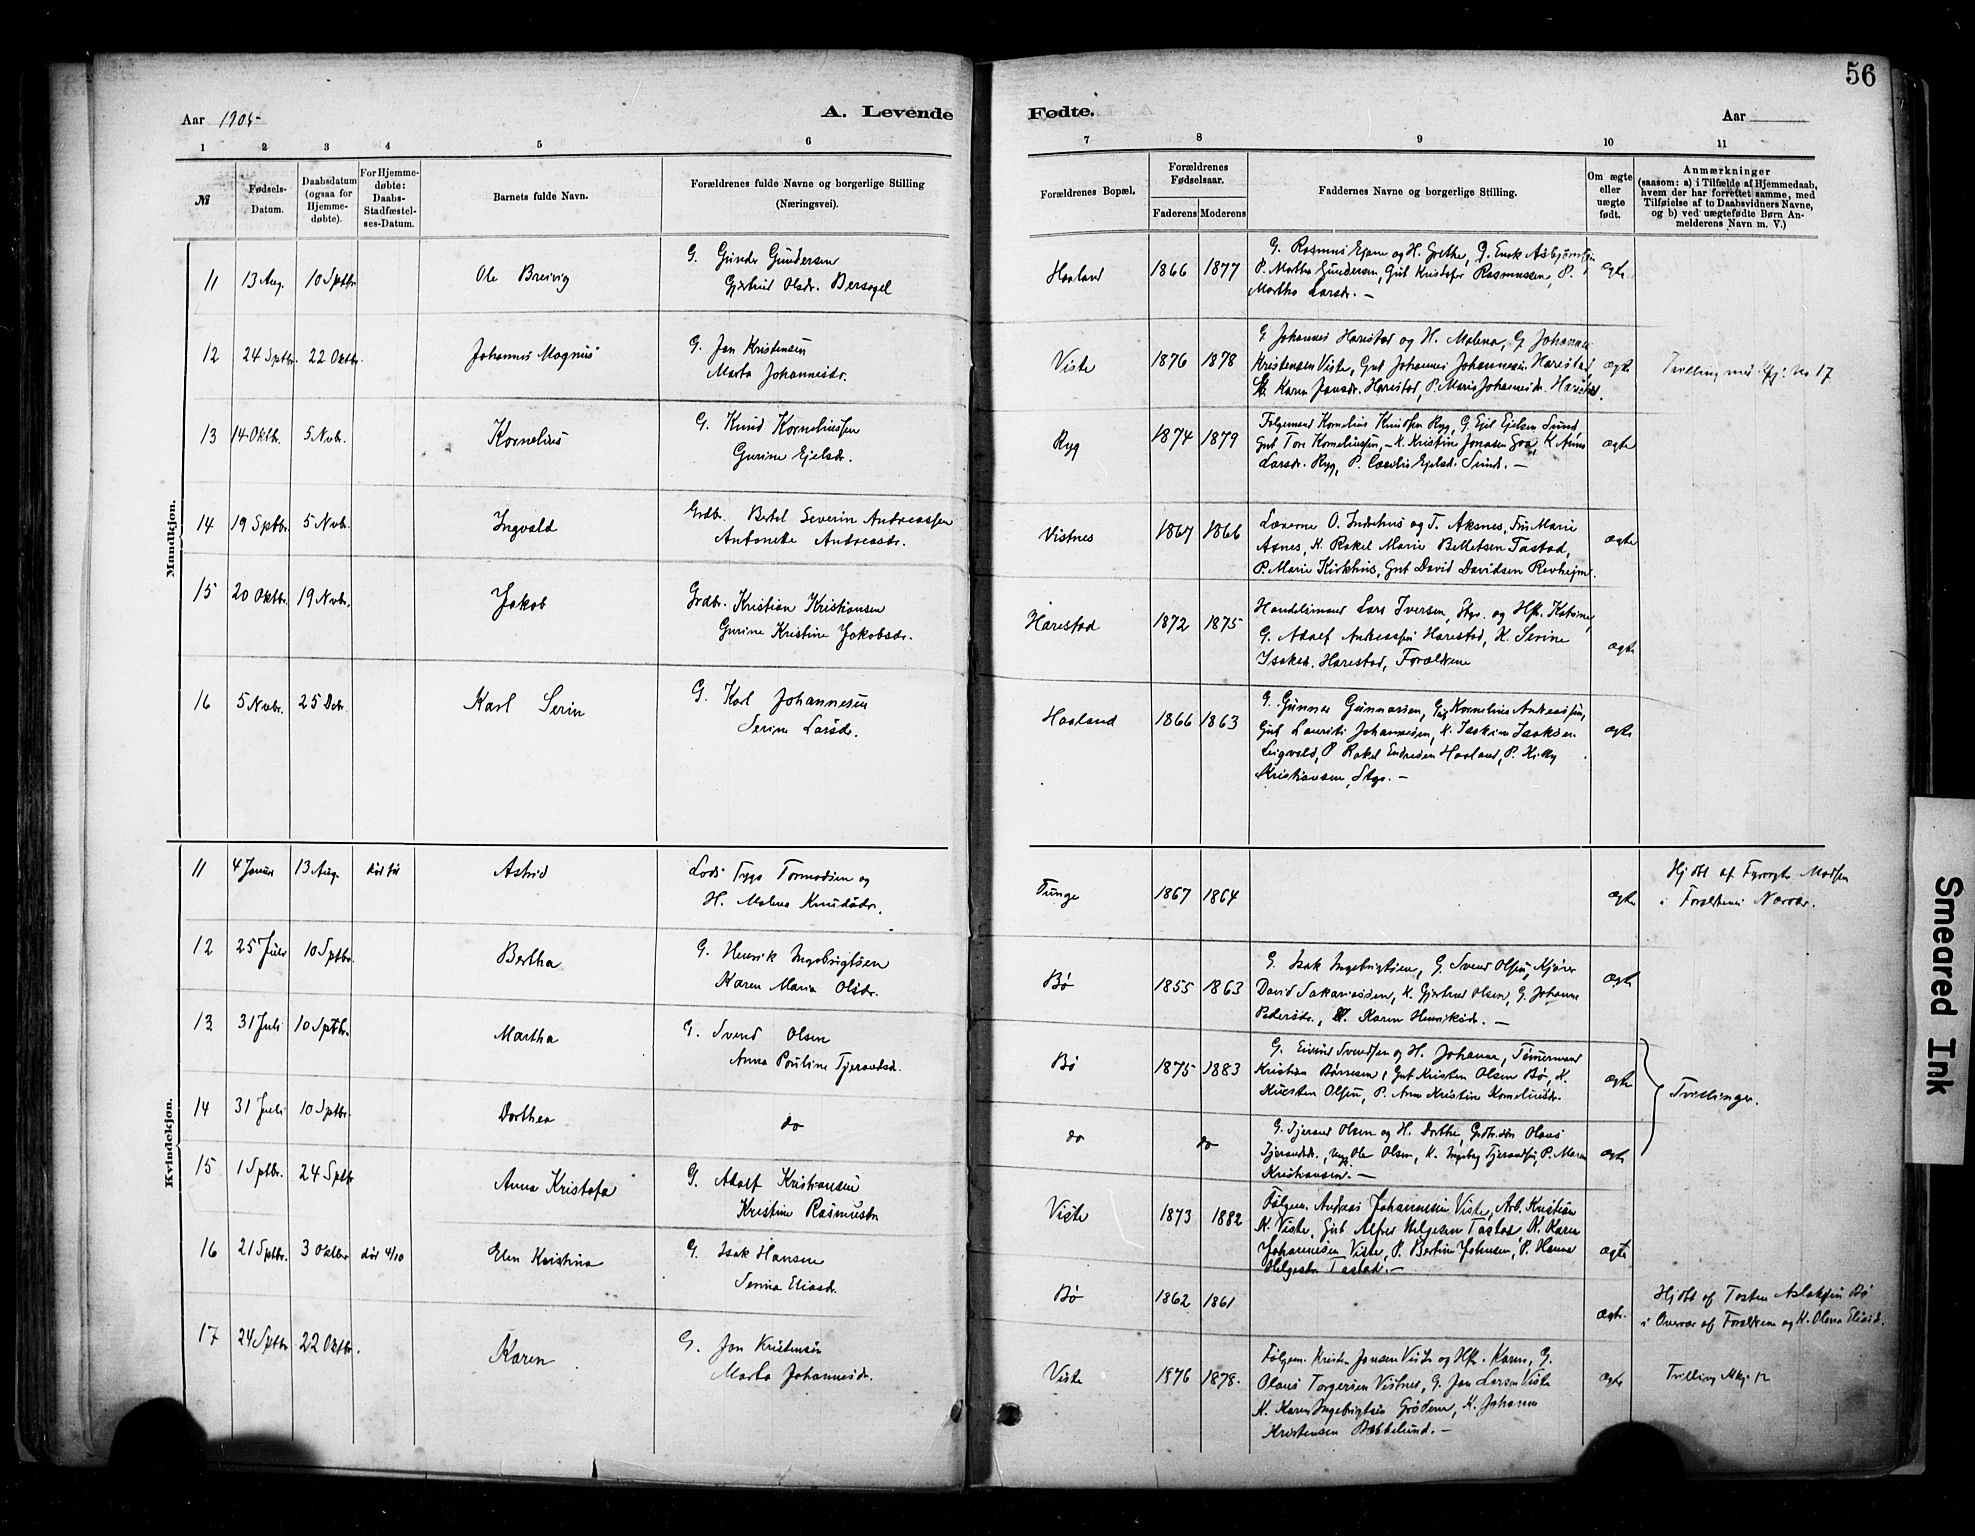 56
Aar 1905
A. Levende
Fødte.
Aar
1 2 3 4 5 6 7 8 9 10 11
№
Fødsels-
Datum.
Daabsdatum
(ogsaa for
Hjemme-
døbte).
For Hjemme-
døbte:
Daabs-
Stadfæstel-
ses-Datum.
Barnets fulde Navn.
Forældrenes fulde Navne og borgerlige Stilling
(Næringsvei).
Forældrenes Bopæl.
Forældrenes
Fødselsaar.
Faderens Moderens
Faddernes Navne og borgerlige Stilling.
Om ægte
eller
uægte
født.
Anmærkninger
(saasom: a) i Tilfælde af Hjemmedaab,
hvem der har forrettet samme, med
Tilføielse af to Daabsvidners Navne,
og b) ved uægtefødte Børn An-
melderens Navn m. V.)
Mandkjøn.
11 13 Aug. 10 Sptbr. Ole Breivig
G. Gunder Gundersen
Gjertrud Olsdr. Bersagel
Haaland 1866 1877
G. Rasmus
P. Martha Gundersen, Gut Kristofer Rasmussen, P.
Martha Larsdr. —
ægte
12 24 Sptbr. 22 Oktbr. Johannes Magnus
G. Jan Kristensen
Marta Johannesdr.
Viste 1876 1878
G. Johannes Harestad og H. Malena, G. Johannes
Kristensen Viste, Gut Johannes Johannessen Harestad,
K. Karen Jansdr. Harestad, P. Maria Johannesdr. Harestad.
ægte
Tvilling med No 17
13 14 Oktbr. 5 Nvbr. Kornelius
G. Knud Korneliussen
Gurine Ejelsdr.
Ryg 1874 1879
Folgemand Kornelius Knudsen Ryg, G. Ejel Ejelsen Sund
Gut Tore Korneliussen, K. Kristine Jonasen Goa, K. Anna
Larsdr. Ryg, P. Cecilie Ejelsd. Sund. —
ægte
14 19 Sptbr. 5 Nvbr. Ingvald
Grdbr. Bertel Severin Andreassen
Antonette Andreasdr.
Vistnes 1867 1866
Lærerne O. Indrehus og T. Aksnes, Fru Marie
Asnes, K. Rakel Marie Tastad,
P. Marie Kirkhus, Gut David Davidsen Revheim.
ægte
15 20 Oktbr. 19 Nvbr. Jakob
Grdbr. Kristian Kristiansen
Gurine Kristine Jakobsdr.
Harestad 1872 1875
Handelsmand Lars Iversen, Stgr. og Hst. Katrine,
G. Adolf Andreassen Harestad, K. Serine
Isaksd. Harestad, Forældrene
ægte
16 5 Nvbr. 25 Dcbr. Karl Serin
G. Karl Johannesen
Serine Larsdr.
Haaland 1866 1863
G. Gunnar Gunnarsen, Kornelius Andreassen,
Gut Laurits Johannesen, K. Isaksen
Leigvold, P. Rakel Endresen Haaland, P.
Kristiansen, Stgr. —
ægte
Kvindekjøn.
11 4 Januar 13 Aug. Astrid
Lods Trygo Tormodsen og
H. Malena Knudsdr.
Tunge 1867 1864
ægte
Hjdbt af Madsen
i Forældrenes Nærvær.
12 25 Juli 10 Sptbr. Bertha
G. Henrik Ingebrigtsen
Karen Maria Olsdr.
Bø 1855 1863
G. Isak Ingebrigtsen, G. Svend Olsen, Kjører
David Sakariassen, K. Gjertrud Olsen, G. Johanne
Pedersdr., K. Karen Henriksdr. —
ægte
13 31 Juli 10 Sptbr. Martha
G. Svend Olsen
Anna Pauline Tjerandsd.
Bø 1875 1883
G. Eivind Svendsen og H. Johanna, Tømmermand
Kristian Børresen, Gut Kristen Olsen Bø, K.
Kirsten Olsen, P. Ane Kristine Korneliusdr.
ægte
Tvillinger.
14 31 Juli 10 Sptbr. Dorthea
do
do do
G. Tjerand Olsen og H. Dorthe, Olaus
Tjerandsdr., Ole Olsen, K. Ingeborg Tjerandsen, P. Maren
Kristiansen. —
ægte
15 1 Sptbr. 24 Sptbr. Anna Kristofa
G. Adolf Kristiansen
Kristine Rasmusdr.
Viste 1873 1882
Følgem. Andreas Johannesen Viste, Arb. Kristian
K. Viste, Gut Alfred Helgesen Tastad, K. Karen
Johannesen Viste, P. Bertine Johnsen, P. Hanna
Helgesdr. Tastad. —
ægte
16 21 Sptbr. 3 Oktbr. død 4/10 Elen Kristina
G. Isak Hansen
Serina Eliasdr.
Bø 1862 1861
ægte.
Hjdbt af Tosten Aslaksen Bø
i Overvær af Forældrene og K. Olena Eliasd.
17 24 Sptbr. 22 Oktbr. Karen
G. Jan Kristensen
Marta Johannesdr.
Viste 1876 1878.
Følgem. Kristen Jansen Viste og Hst. Karen, G.
Olaus Torgersen Vistnes, G. Jan Larsen Viste
K. Karen Ingebrigtsen Grødem, K. Johanna
Kristensen Bøkkelund. —
ægte
Tvilling Mkj. 12
Smeared Ink